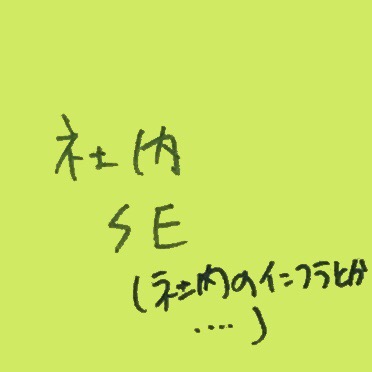 社内
SE
(社内のインフラとか
....)